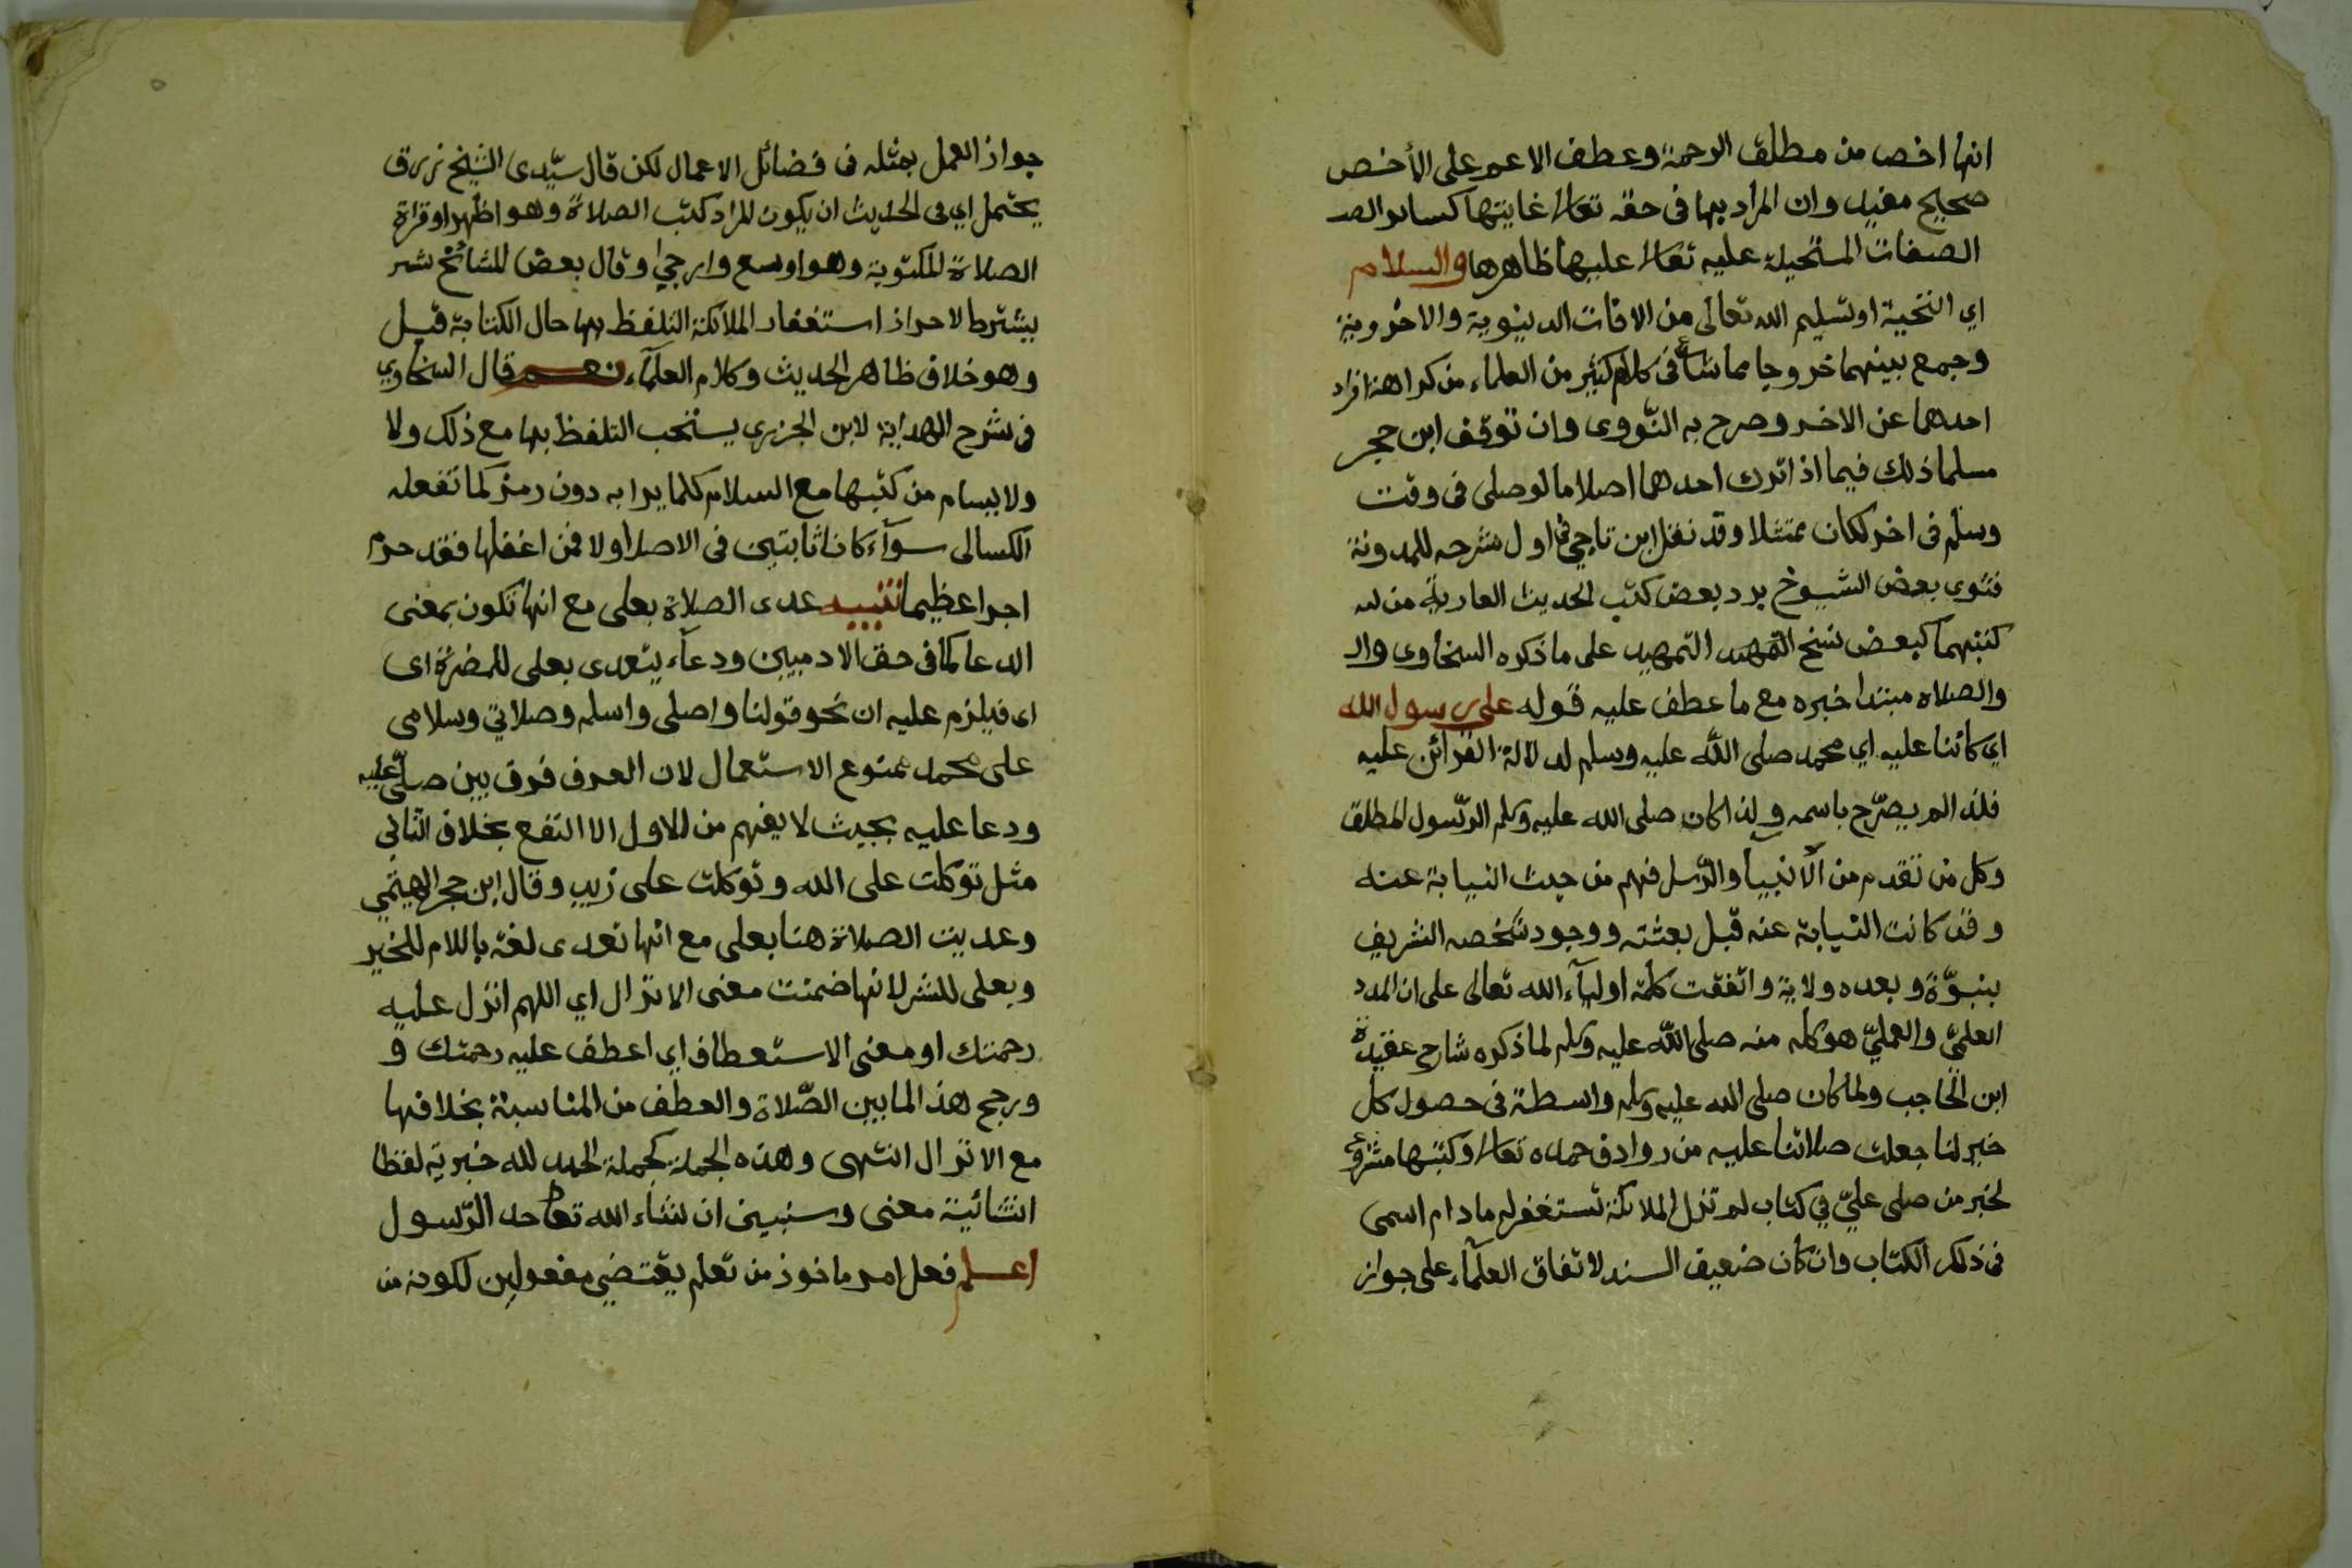 انها اخص من مطلق الرحمة وعطف الاعم على الأخص
صحيح مفيد وان المراد بها فى حقه تعالى غايتها كسائر الصـ
الصفات المستحيلة عليه تعالى عليها ظاهرها والسلام
اي التحية او تسليم الله تعالى من الافات الدينوية والاخروية
وجمع بينهما خروجا مما شاع فى كلام كثير من العلماء من كراهة افراد
احدهما عن الاخر وصرح به النّووى وان توقف ابن حجر
مسلما ذلك فيما اذا ترك احدهما اصلا ما لو صلى فى وقت
وسلم فى اخر لكان ممتثلا وقد نقل ابن ناجي فى اول شرحه للمدونة
فتوى بعض الشيوخ برد بعض كتب الحديث العارية من
كتبتهما كبعض نسخ التمهيد على ما ذكره السخاوى والـ
والصلاة مبتدا خبره مع ما عطف عليه قوله على رسول الله
اي كائنا عليه اي محمد صلى الله عليه وسلم لدلالة القرائن عليه
فلذا لم يصرّح باسمه ولذا كان صلى الله عليه وسلم الرّسول المطلق
وكل من تقدم من الأنبيآ والرّسل فهم من حيث النيابة عنه
وقد كانت النيابة عنه قبل بعثته ووجود شخصه الشريف
بنبوّة وبعده ولاية واتفقت كلمة اوليآء الله تعالى على ان المدد
العلميّ والعمليّ هو كله منه صلى الله عليه وسلم لما ذكره شارح عقيدة
ابن الحاجب ولما كان صلى الله عليه وسلم واسطة فى حصول كل
خير لنا جعلت صلاتنا عليه من روادف حمده تعالى وكتبها مشروع
لخبر من صلى عليّ في كتاب لم تزل الملائكة تستغفر له ما دام اسمى
فى ذلك الكتاب وان كان ضعيف السند لاتفاق العلمآء على جواز
جواز العمل بمثله فى فضائل الاعمال لكن قال سيّدى الشيخ زروق
يحتمل اي فى الحديث ان يكون المراد كتب الصلاة وهو اظهر او قراة
الصلاة المكتوبة وهو اوسع وارجى وقال بعض المشائخ شر
يشترط لاحراز استغفار الملائكة التلفظ بها حال الكتابة قيل
وهو خلاف ظاهر الحديث وكلام العلمآء نعم قال السخاوي
فى شرح الهداية لابن الجزرى يستحب التلفظ بها مع ذلك ولا
ولا يسام من كتبها مع السلام كلما يرا به دون رمز كما تفعله
الكسالى سوآء كانا ثابتين فى الاصل او لا فمن اغفلها فقد حرم
اجرا عظيما تنبيه عدى الصلاة بعلى مع انها تكون بمعنى
الدعا كما فى حق الادميين ودعآء يتعدى بعلى للمضرة اى
اى فيلزم عليه ان نحو قولنا واصلى واسلم وصلاتي وسلامى
على محمد ممنوع الاستعمال لان العرف فرق بين صلّى عليه
ودعا عليه بحيث لا يفهم من الاول الا النفع بخلاف الثانى
مثل توكلت على الله وتوكلت على زيد وقال ابن حجر الهيتمي
وعديت الصلاة هنا بعلى مع انها تعدى لغة باللام للخير
وبعلى للشر لانها ضمنت معنى الانزال اي اللهم انزل عليه
رحمتك او معنى الاستعطاف اي اعطف عليه رحمتك و
ورجح هذا لما بين الصّلاة والعطف من المناسبة بخلافها
مع الانزال انتهى وهذه الجملة كجملة الحمد لله خبرية لفظا
انشائية معنى وسنبين ان شاء الله تعالى حد الرّسول
اعلم فعل امر ماخوذ من تعلم يقتضي مفعولين لكونه من